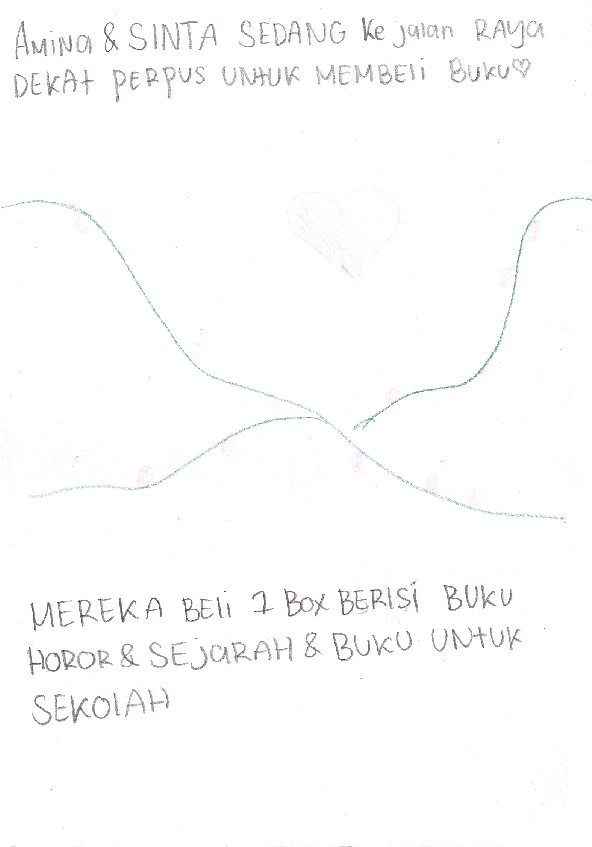 Amina & SINTA SEDANG Ke jalan RAya
DEKAt PERPUS UNtUK MEMBELi Buku♡
MEREKA BELi 1 Box BERISI BUKU
HOROR & SEJARAH & BUKU UNtUK
SEKOlAH